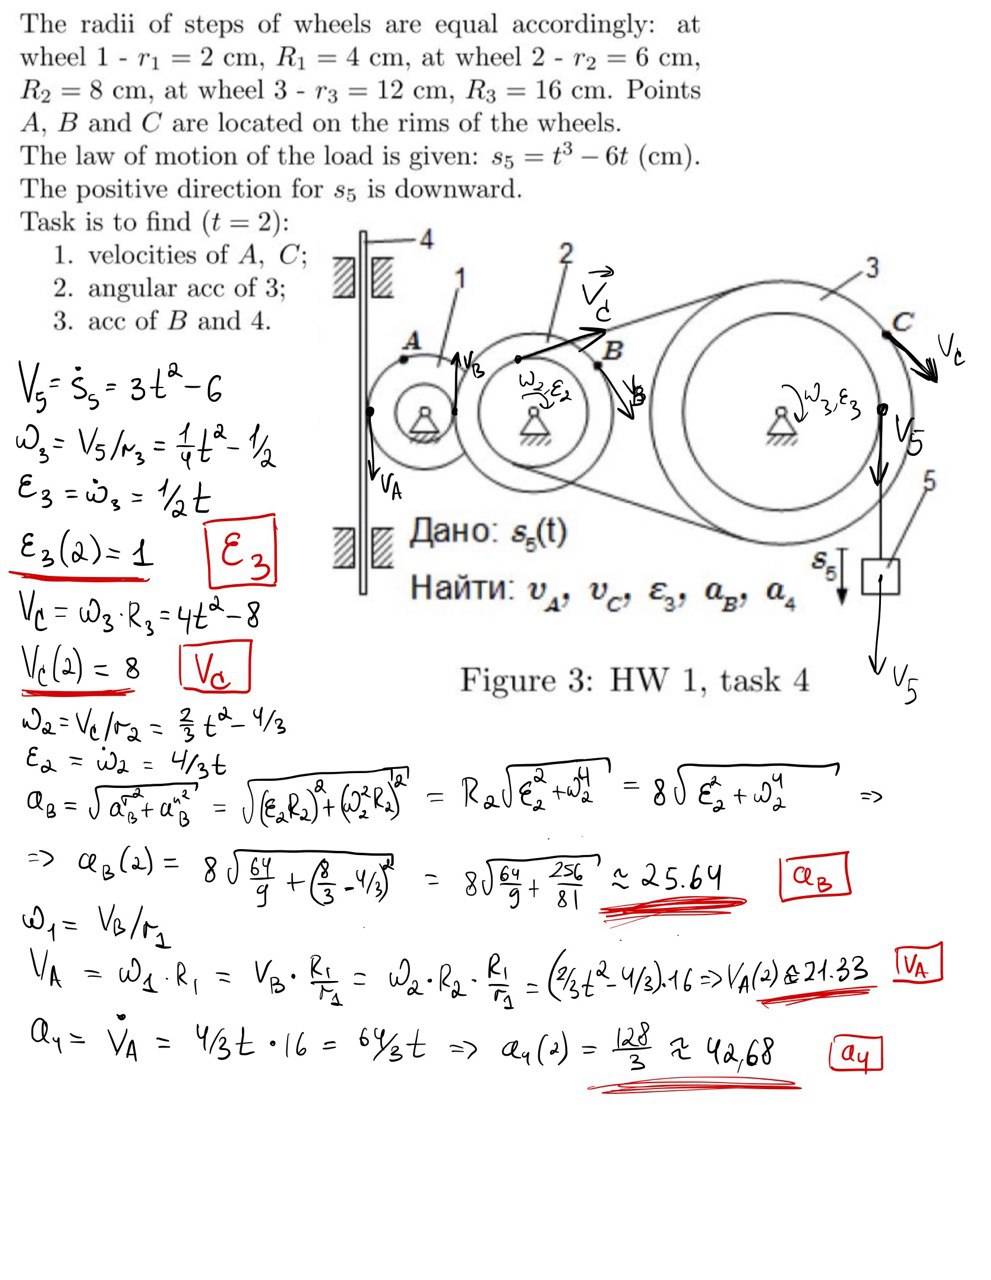 The radii of steps of wheels are equal accordingly: at
wheel 1 - r₁ = 2 cm, R₁ = 4 cm, at wheel 2 - r₂ = 6 cm,
R₂ = 8 cm, at wheel 3 - r₃ = 12 cm, R₃ = 16 cm. Points
A, B and C are located on the rims of the wheels.
The law of motion of the load is given: s₅ = t³ − 6t (cm).
The positive direction for s₅ is downward.
Task is to find (t = 2):
1. velocities of A, C;
2. angular acc of 3;
3. acc of B and 4.
4
1
2
3
A
B
C
V_C
V_B
V_B
V_C
ω₂,ε₂
ω₃,ε₃
V_A
V₅
5
s₅
V₅
Дано: s₅(t)
Найти: v_A, v_C, ε₃, a_B, a₄
Figure 3: HW 1, task 4
V₅ = ṡ₅ = 3t² − 6
ω₃ = V₅/r₃ = 1/4 t² − 1/2
ε₃ = ω̇₃ = 1/2 t
ε₃(2) = 1 ε₃
V_C = ω₃·R₃ = 4t² − 8
V_C(2) = 8 V_C
ω₂ = V_C/r₂ = 2/3 t² − 4/3
ε₂ = ω̇₂ = 4/3 t
a_B = √(a_B^τ² + a_B^n²) = √((ε₂R₂)² + (ω₂²R₂)²) = R₂√(ε₂² + ω₂⁴) = 8√(ε₂² + ω₂⁴) =>
=> a_B(2) = 8√(64/9 + (8/3 − 4/3)²) = 8√(64/9 + 256/81) ≈ 25.64 a_B
ω₁ = V_B/r₁
V_A = ω₁·R₁ = V_B · R₁/r₁ = ω₂·R₂·R₁/r₁ = (2/3 t² − 4/3)·16 => V_A(2) ≈ 21.33 V_A
a₄ = V̇_A = 4/3 t · 16 = 64/3 t => a₄(2) = 128/3 ≈ 42,68 a₄